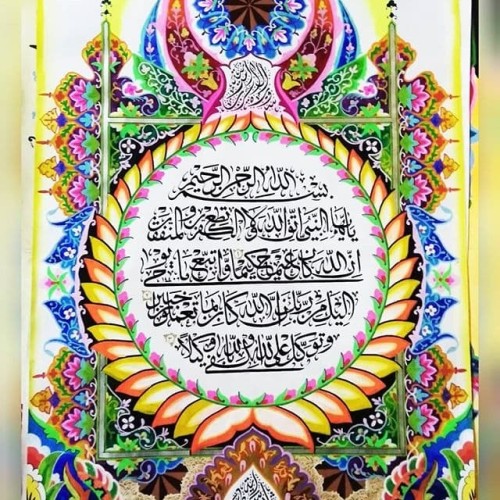 بسم الله الرحمن الرحيم
يايها النبي اتق الله ولا تطع الكفرين والمنفقين
ان الله كان عليما حكيما واتبع ما يوحى
اليك من ربك ان الله كان بما تعملون خبيرا
وتوكل على الله وكفى بالله وكيلا